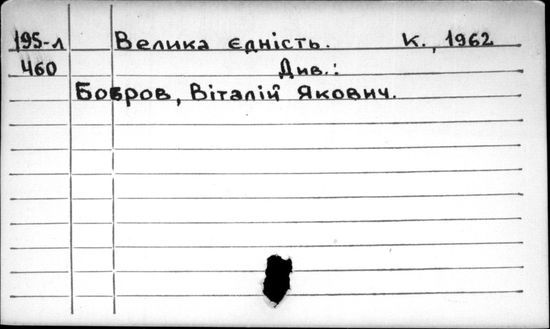 195-л Велика єдність. К., 1962
460 Див.:
Бобров, Віталій Якович.